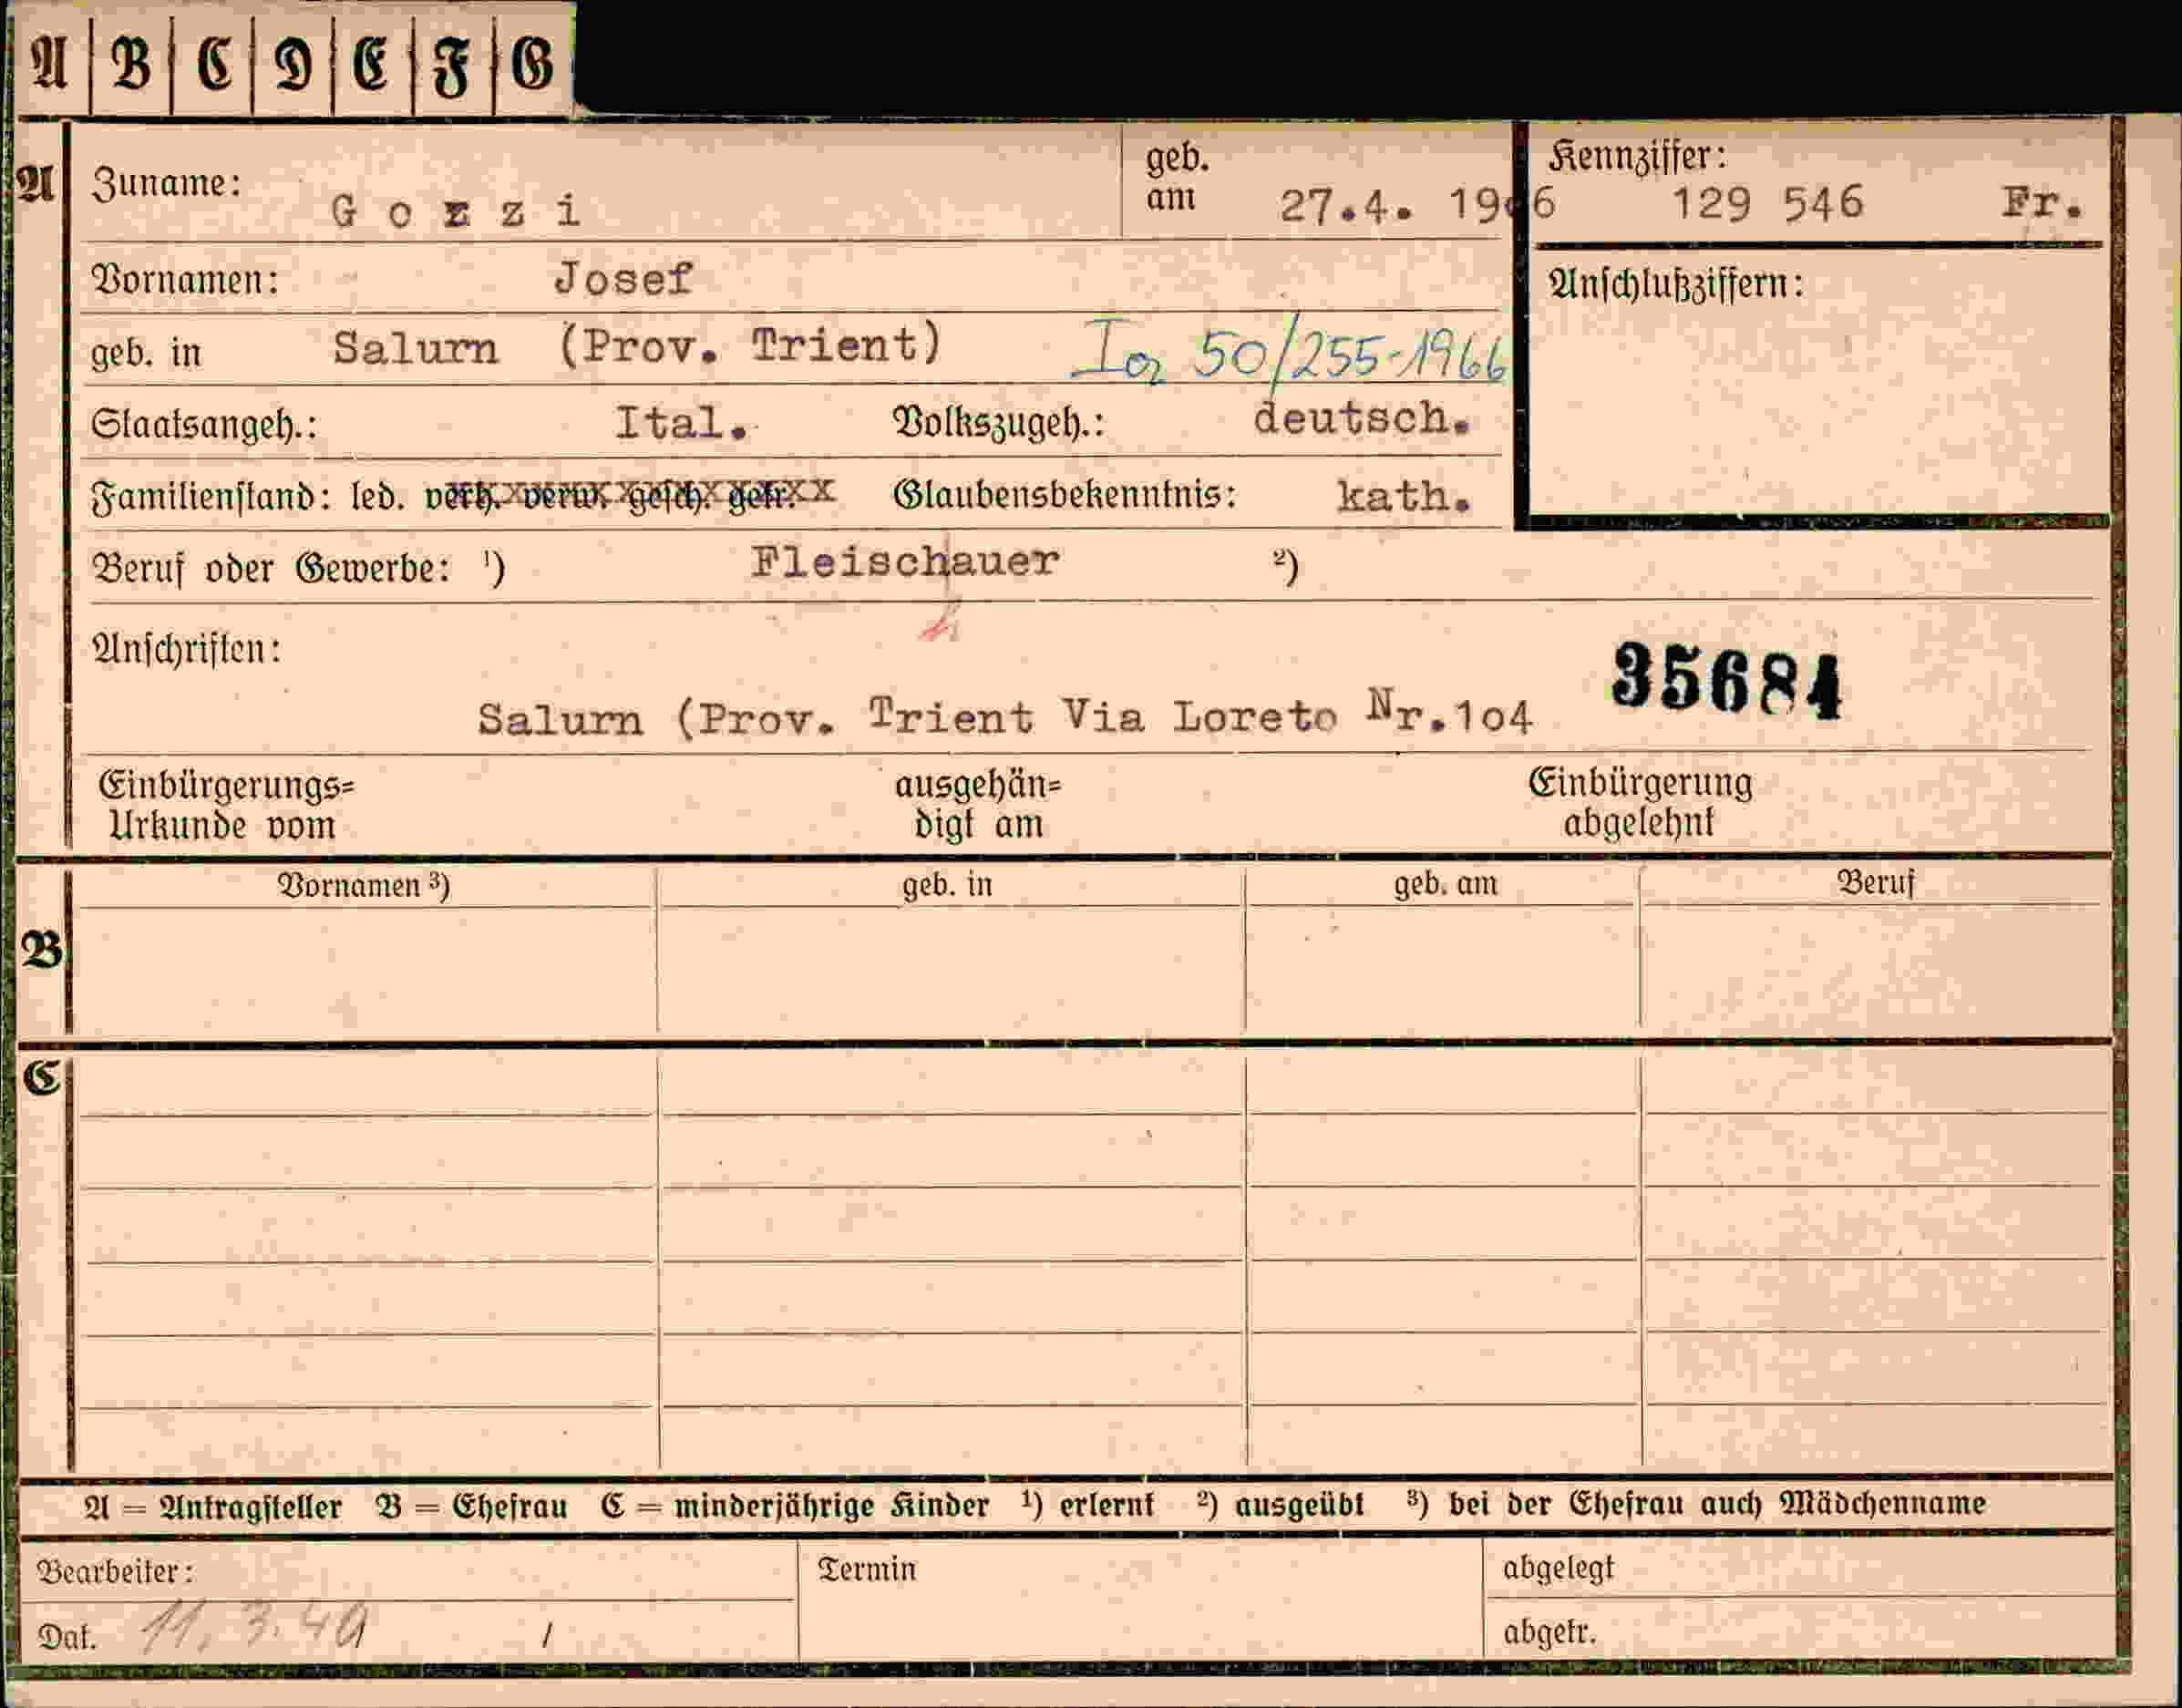 A B C D E F G
A
Zuname: Gozzi
geb. am 27.4. 1906
Kennziffer: 129 546 Fr.
Vornamen: Josef
Anschlußziffern:
geb. in Salurn (Prov. Trient) 50/255-1966
Staatsangeh.: Ital. Volkszugeh.: deutsch.
Familienstand: led. verh. verw. gesch. getr. Glaubensbekenntnis: kath.
Beruf oder Gewerbe: ¹) Fleischauer ²)
h
Anschriften:
35684
Salurn (Prov. Trient Via Loreto Nr.1o4
Einbürgerungs= ausgehän= Einbürgerung
Urkunde vom digt am abgelehnt
B
Vornamen ³) geb. in geb. am Beruf
C
A = Antragsteller B = Ehefrau C = minderjährige Kinder ¹) erlernt ²) ausgeübt ³) bei der Ehefrau auch Mädchenname
Bearbeiter: Termin abgelegt
Dat. 11.3.40 abgetr.